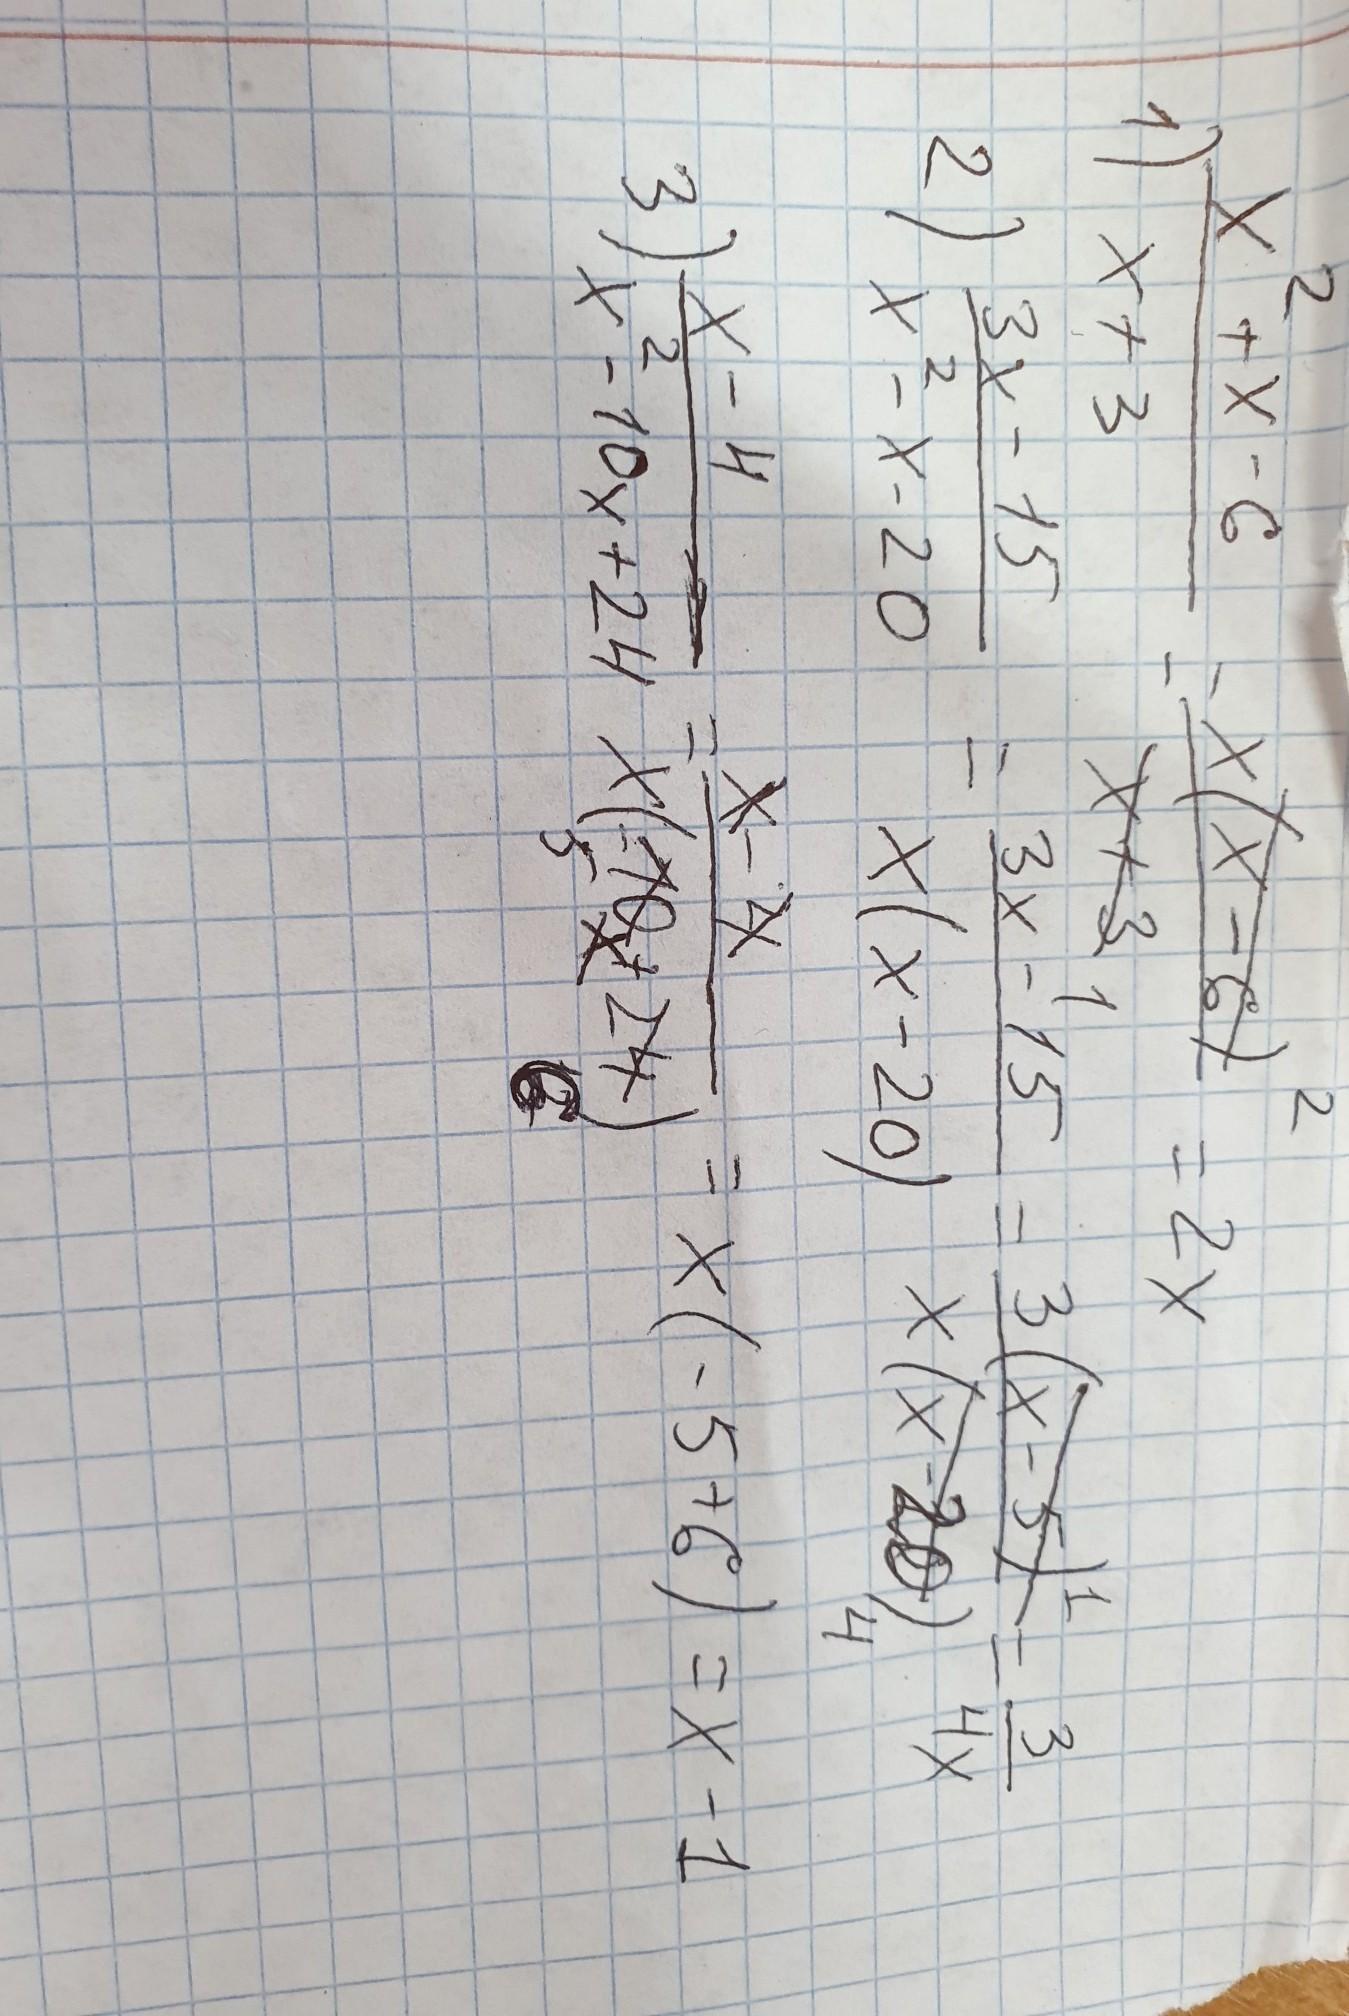 1) x² + x - 6 / x + 3 = x(x - 6)² / x + 3 1 = 2x
2) 3x - 15 / x² - x - 20 = 3x - 15 / x(x - 20) = 3(x - 5)¹ / x(x - 20) 4 = 3 / 4x
3) x - 4 / x² - 10x + 24 = x - 4 / x(-10x + 24) 5 6 = x(-5 + 6) = x - 1